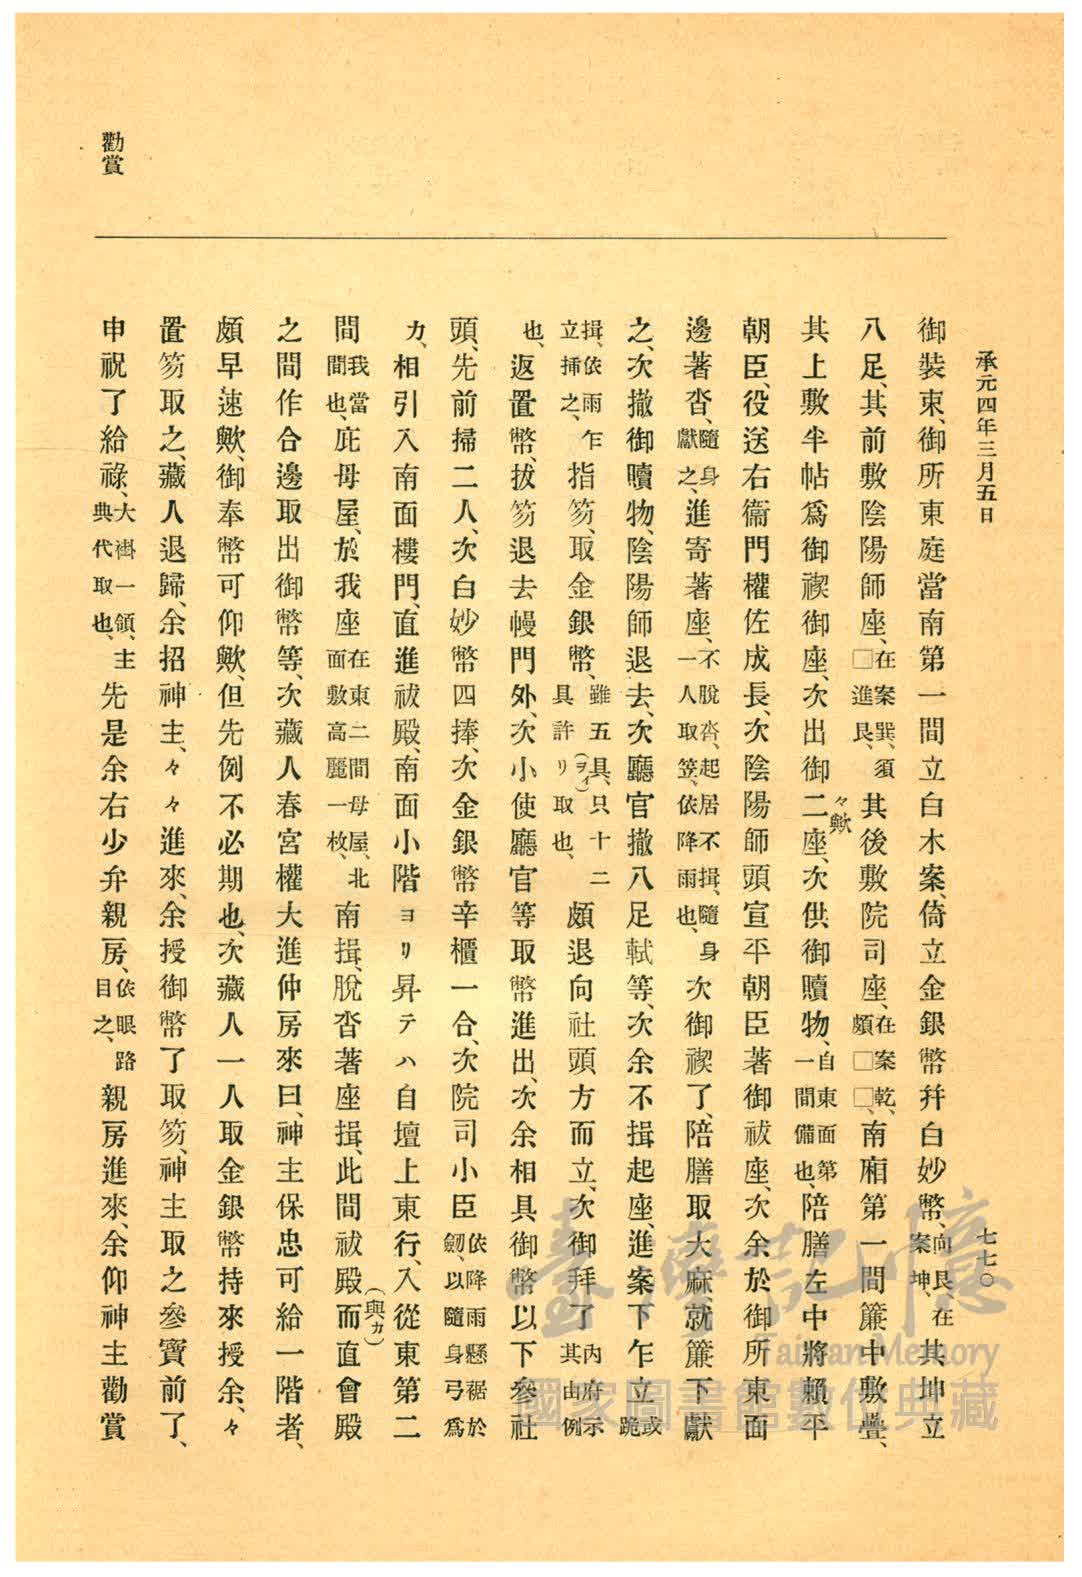 承元四年三月五日
七七〇
勸賞
御裝束、御所東庭當南第一間立白木案、倚立金銀幣幷白妙幣、向艮、在案坤、其坤立
八足、其前敷陰陽師座、在案巽、須□進艮、其後敷院司座、在案乾、頗□□、南廂第一間簾中敷疊、
其上敷半帖爲御禊御座、次出御二座、々歟次供御贖物、自東面第一間備也、陪膳左中將賴平
朝臣、役送右衞門權佐成長、次陰陽師頭宣平朝臣著御祓座、次余於御所東面
邊著沓、隨身獻之、進寄著座、不脫沓、起居不揖、隨身一人取笠、依降雨也、次御禊了、陪膳取大麻、就簾下獻
之、次撤御贖物、陰陽師退去、次廳官撤八足軾等、次余不揖起座、進案下乍立或跪
揖、依雨立揷之、乍指笏、取金銀幣、雖五具、(ヲイ)只十二具許リ取也、頗退向社頭方而立、次御拜了內府示其由例
也、返置幣、拔笏退去幔門外、次小使廳官等取幣進出、次余相具御幣以下參社
頭、先前掃二人、次白妙幣四捧、次金銀幣辛櫃一合、次院司小臣依降雨懸裾於劒、以隨身弓爲
力、相引入南面樓門、直進祓殿、南面小階ヨリ昇テハ自壇上東行、入從東第二
間我當間也、庇母屋、於我座在東二間母屋、北面敷高麗一枚、南揖、脫沓著座揖、此間祓殿而(與カ)直會殿
之間作合邊取出御幣等、次藏人春宮權大進仲房來曰、神主保忠可給一階者、
頗早速歟、御奉幣可仰歟、但先例不必期也、次藏人一人取金銀幣持來授余、々
置笏取之、藏人退歸、余招神主、々々進來、余授御幣了取笏、神主取之參寶前了、
申祝了給祿、大褂一領、主典代取也、先是余右少弁親房、依眼路目之、親房進來、余仰神主勸賞
臺灣記憶
Taiwan Memory
國家圖書館數位典藏